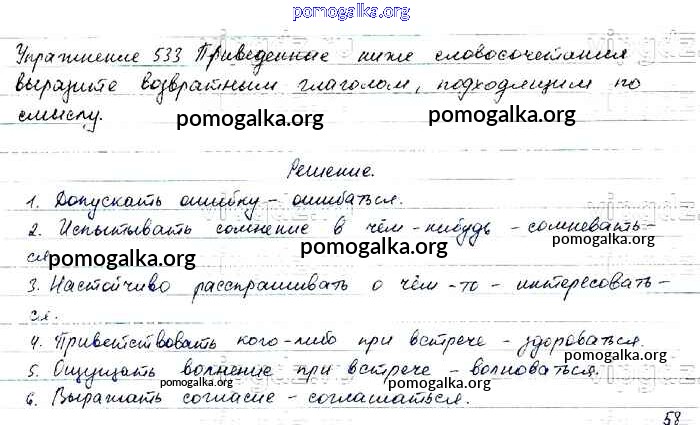 pomogalka.org
Упражнение 533 Приведенные ниже словосочетания
выразите возвратным глаголом, подходящим по
смыслу.
pomogalka.org
pomogalka.org
Решение.
1. Допускать ошибку - ошибаться.
2. Испытывать сомнение в чём-нибудь - сомневать-
ся
pomogalka.org
pomogalka.org
pomogalka.org
3. Настойчиво расспрашивать о чём-то - интересовать-
ся.
4. Приветствовать кого-либо при встрече - здороваться.
pomogalka.org
5. Ощущать волнение при встрече - волноваться.
pomogalka.org
pomogalka.org
6. Выражать согласие - соглашаться.
58